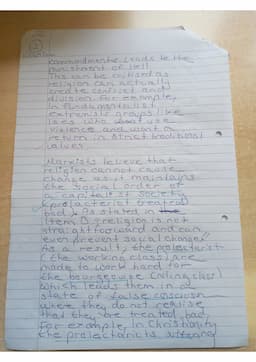 commandments leads to the
punishment of Hell.
This can be criticised as
religion can actually
create conflict and
division. For example,
in fundamentalist
extremist groups like
ISIS who want use
violence and want a
return in strict traditional
values.
Marxists believe that
religion cannot cause
change as it maintains
the social order of
a capitalist society
(proletariat treated
bad). As stated in
Item religion is not
straightforward and can
even prevent social change.
As a result, the proletariat
(the working class) are
made to work hard for
the bourgeoisie (ruling class)
which leads them in a
state of false
where they do not realise
that they are treated bad.
For example, in Christianity
the proletariats